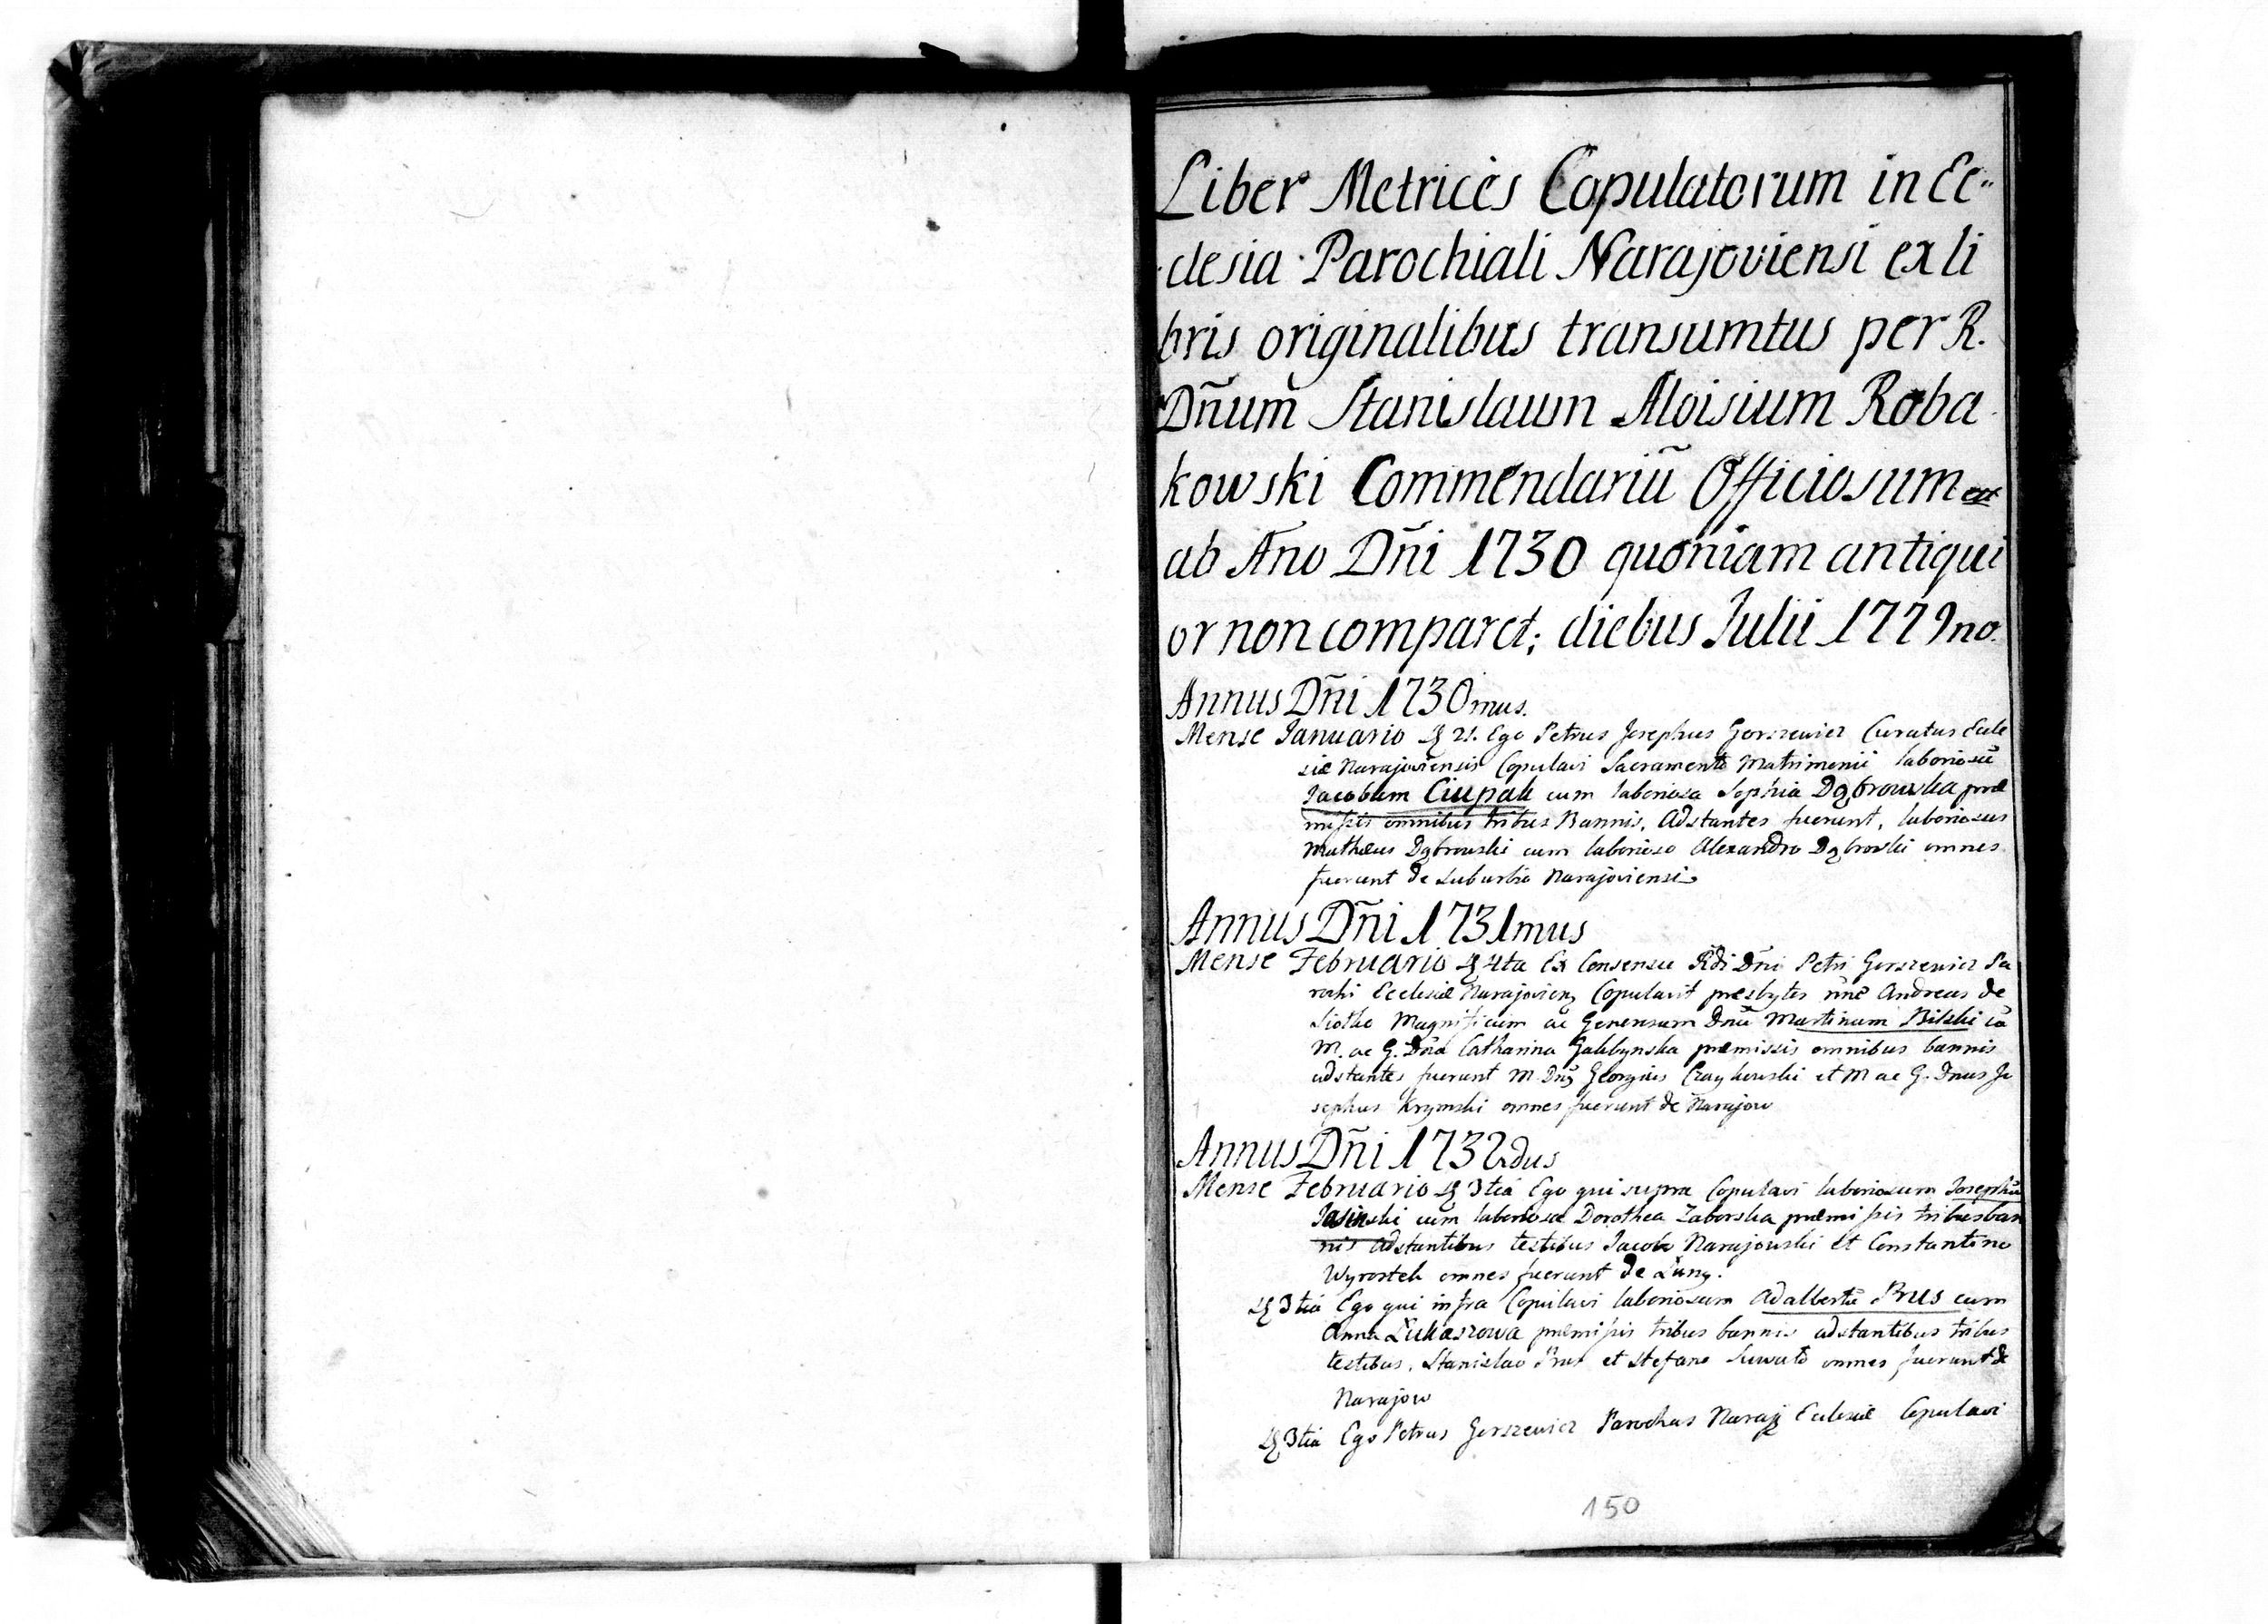 Liber Metrices Copulatorum in Ec„
clesia Parochiali Narajoviensi ex li
bris originalibus transumtus per R.
Dn̄um Stanislaum Aloisium Roba
kowski Commendariū Officiosum
ab An̄o Dn̄i 1730 quoniam antiqui
or non comparet; diebus Julii 1779no.
Annus Dn̄i 1730mus.
Mense Januario 21. Ego Petrus Josephus Gorszewicz Curatus Eccle
siæ Narajoviensis Copulavi Sacramento Matrimonii laboriosū
Jacobum Ciupak cum laboriosa Sophia Dąbrowska præ
missis omnibus tribus Bannis, Adstantes fuerunt, laboriosus
Mathæus Dąbrowski cum laborioso Alexandro Dąbrowski omnes
fuerunt de Suburbio Narajoviensi
Annus Dn̄i 1731mus
Mense Februario 4ta Ex Consensu Rdi Dn̄i Petri Gorszewicz Pa
rochi Ecclesiæ Narajovien Copulavit presbyter Andreas de
Magnificum ac Generosum Dnū Martinum Bilski cū
M. ac G. Dn̄a Catharina præmissis omnibus bannis
adstantes fuerunt M. Dn̄s Georgius Czaykowski et M ac G. Dnus Jo
sephus Krymski omnes fuerunt de Narajow
Annus Dn̄i 1732dus
Mense Februario 3tia Ego qui supra Copulavi laboriosum Josephū
Jasinski cum laboriosa Dorothea Zaborska præmissis tribus ban
nis adstantibus testibus Jacobo Narajowski et Constantino
Wyrostek omnes fuerunt de
3tia Ego qui infra Copulavi laboriosum Adalbertū Prus cum
Anna Łukaszowa præmissis tribus bannis adstantibus tribus
testibus, Stanislao Prus et Stefano omnes fuerunt de
Narajow
3tia Ego Petrus Gorszewicz Parochus Naraj Ecclesiæ Copulavi
150